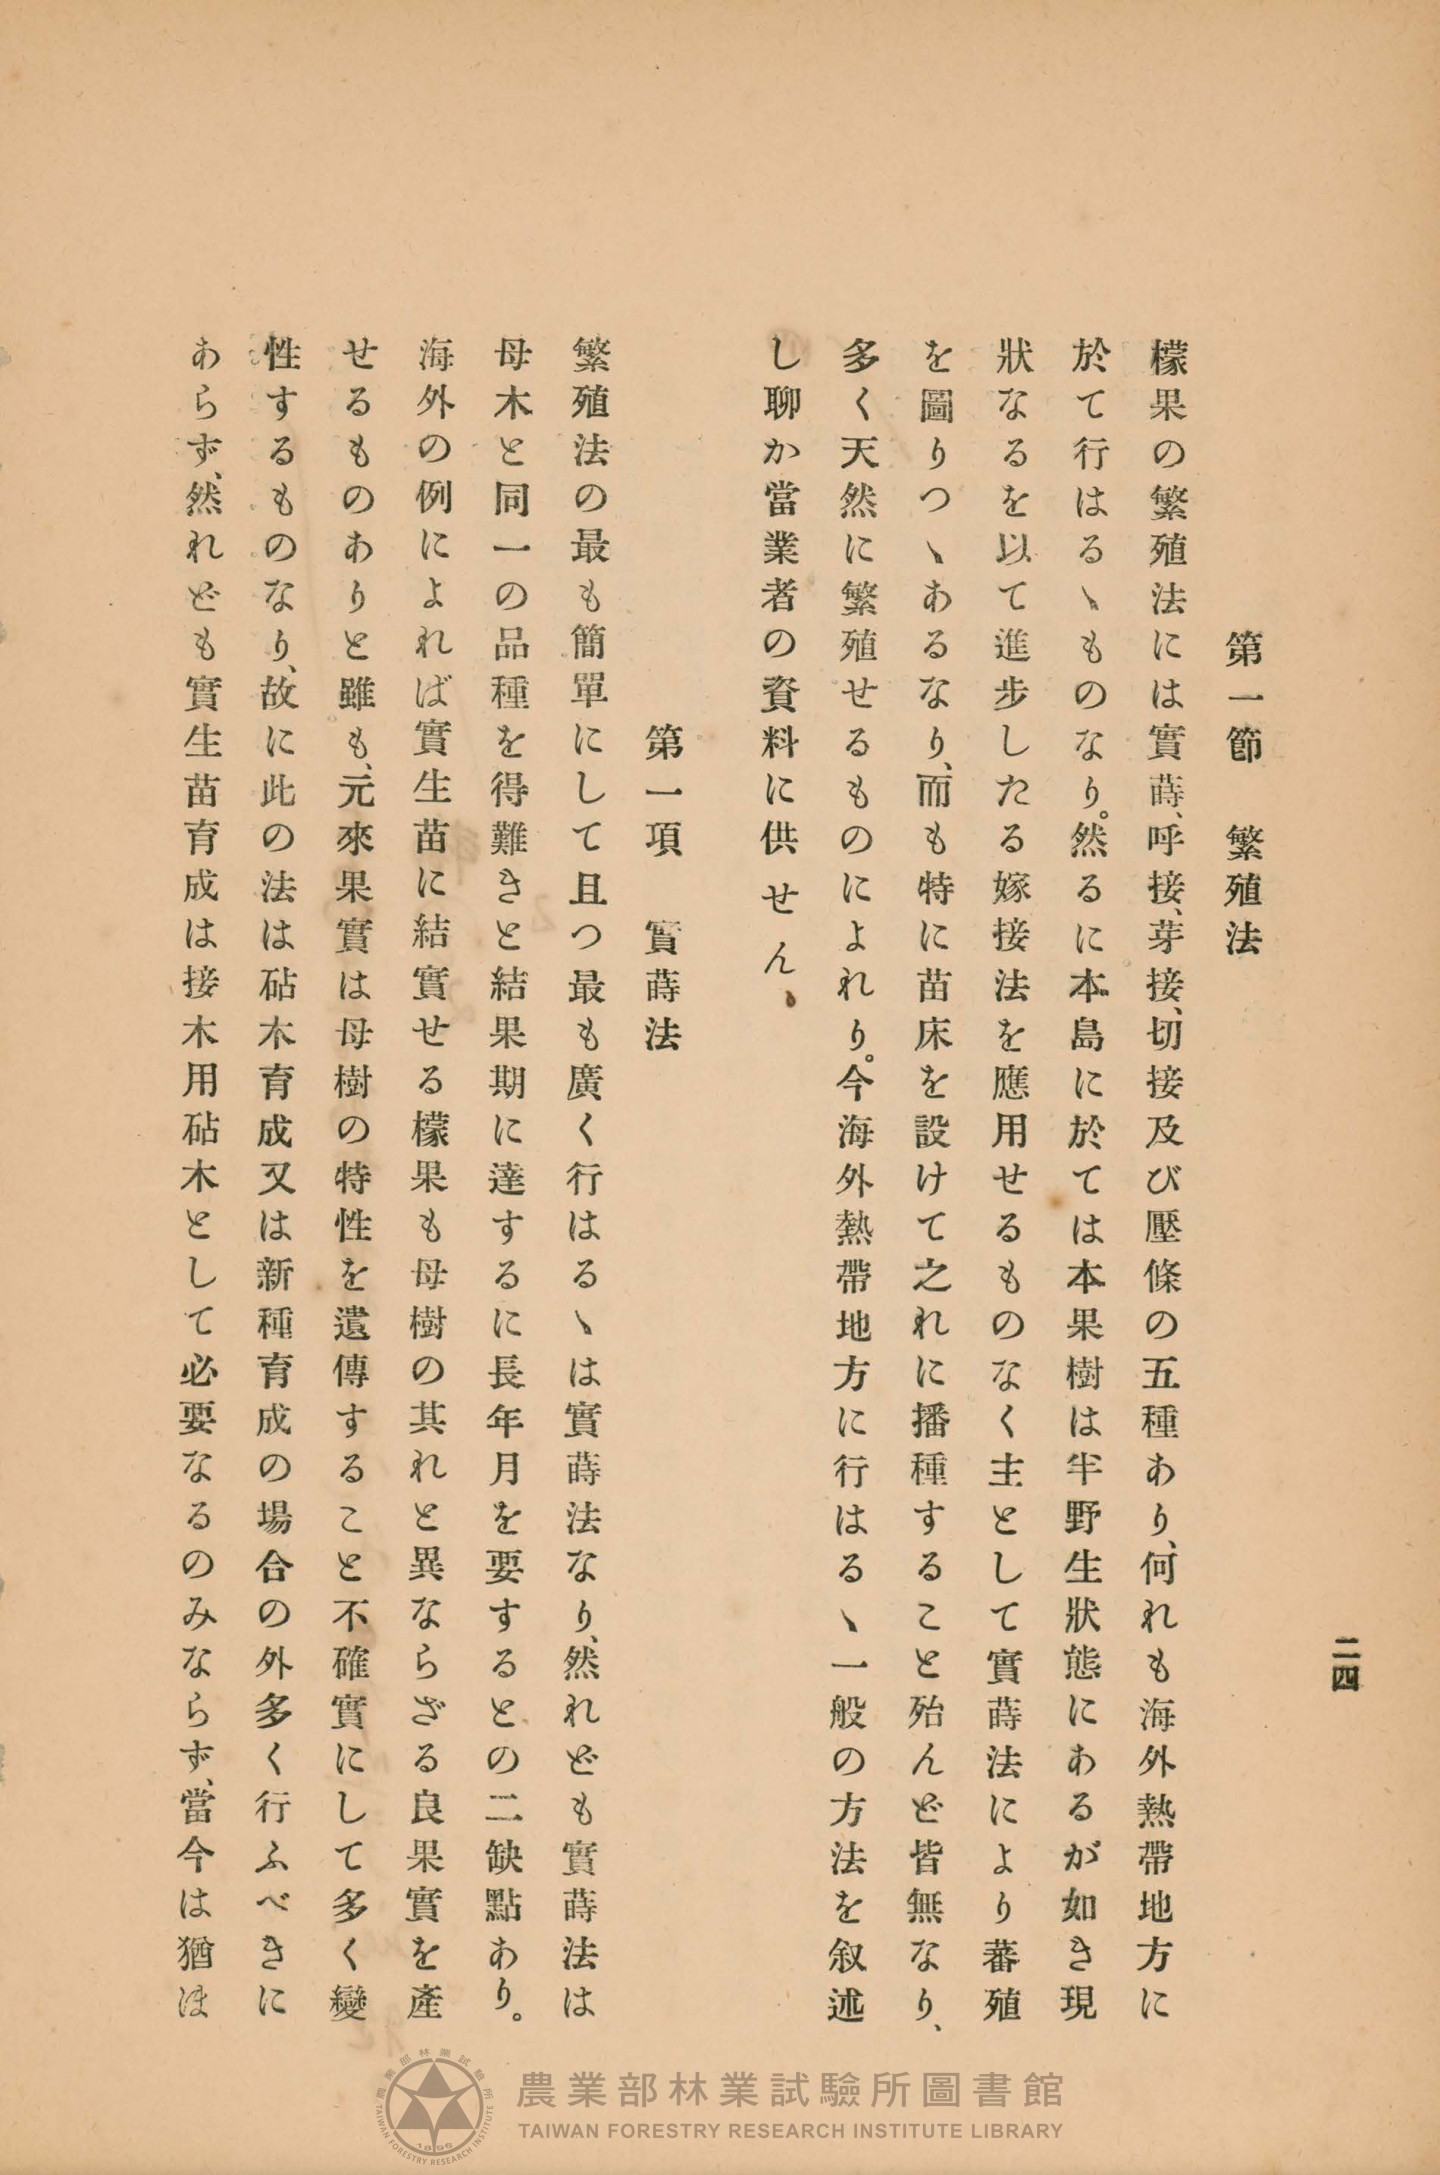 二四
第一節　繁殖法
檬果の繁殖法には實蒔、呼接、芽接、切接及び壓條の五種あり、何れも海外熱帶地方に
於て行はるゝものなり。然るに本島に於ては本果樹は半野生狀態にあるが如き現
狀なるを以て進步したる嫁接法を應用せるものなく主として實蒔法により蕃殖
を圖りつゝあるなり、而も特に苗床を設けて之れに播種すること殆んど皆無なり、
多く天然に繁殖せるものによれり。今海外熱帶地方に行はるゝ一般の方法を叙述
し聊か當業者の資料に供せん、
第一項　實蒔法
繁殖法の最も簡單にして且つ最も廣く行はるゝは實蒔法なり、然れども實蒔法は
母木と同一の品種を得難きと結果期に達するに長年月を要するとの二缺點あり。
海外の例によれば實生苗に結實せる檬果も母樹の其れと異ならざる良果實を產
せるものありと雖も、元來果實は母樹の特性を遺傳すること不確實にして多く變
性するものなり、故に此の法は砧木育成又は新種育成の場合の外多く行ふべきに
あらず、然れども實生苗育成は接木用砧木として必要なるのみならず、當今は猶ほ
農業部林業試驗所圖書館
TAIWAN FORESTRY RESEARCH INSTITUTE LIBRARY
農業部林業試驗所
TAIWAN FORESTRY RESEARCH INSTITUTE
1896